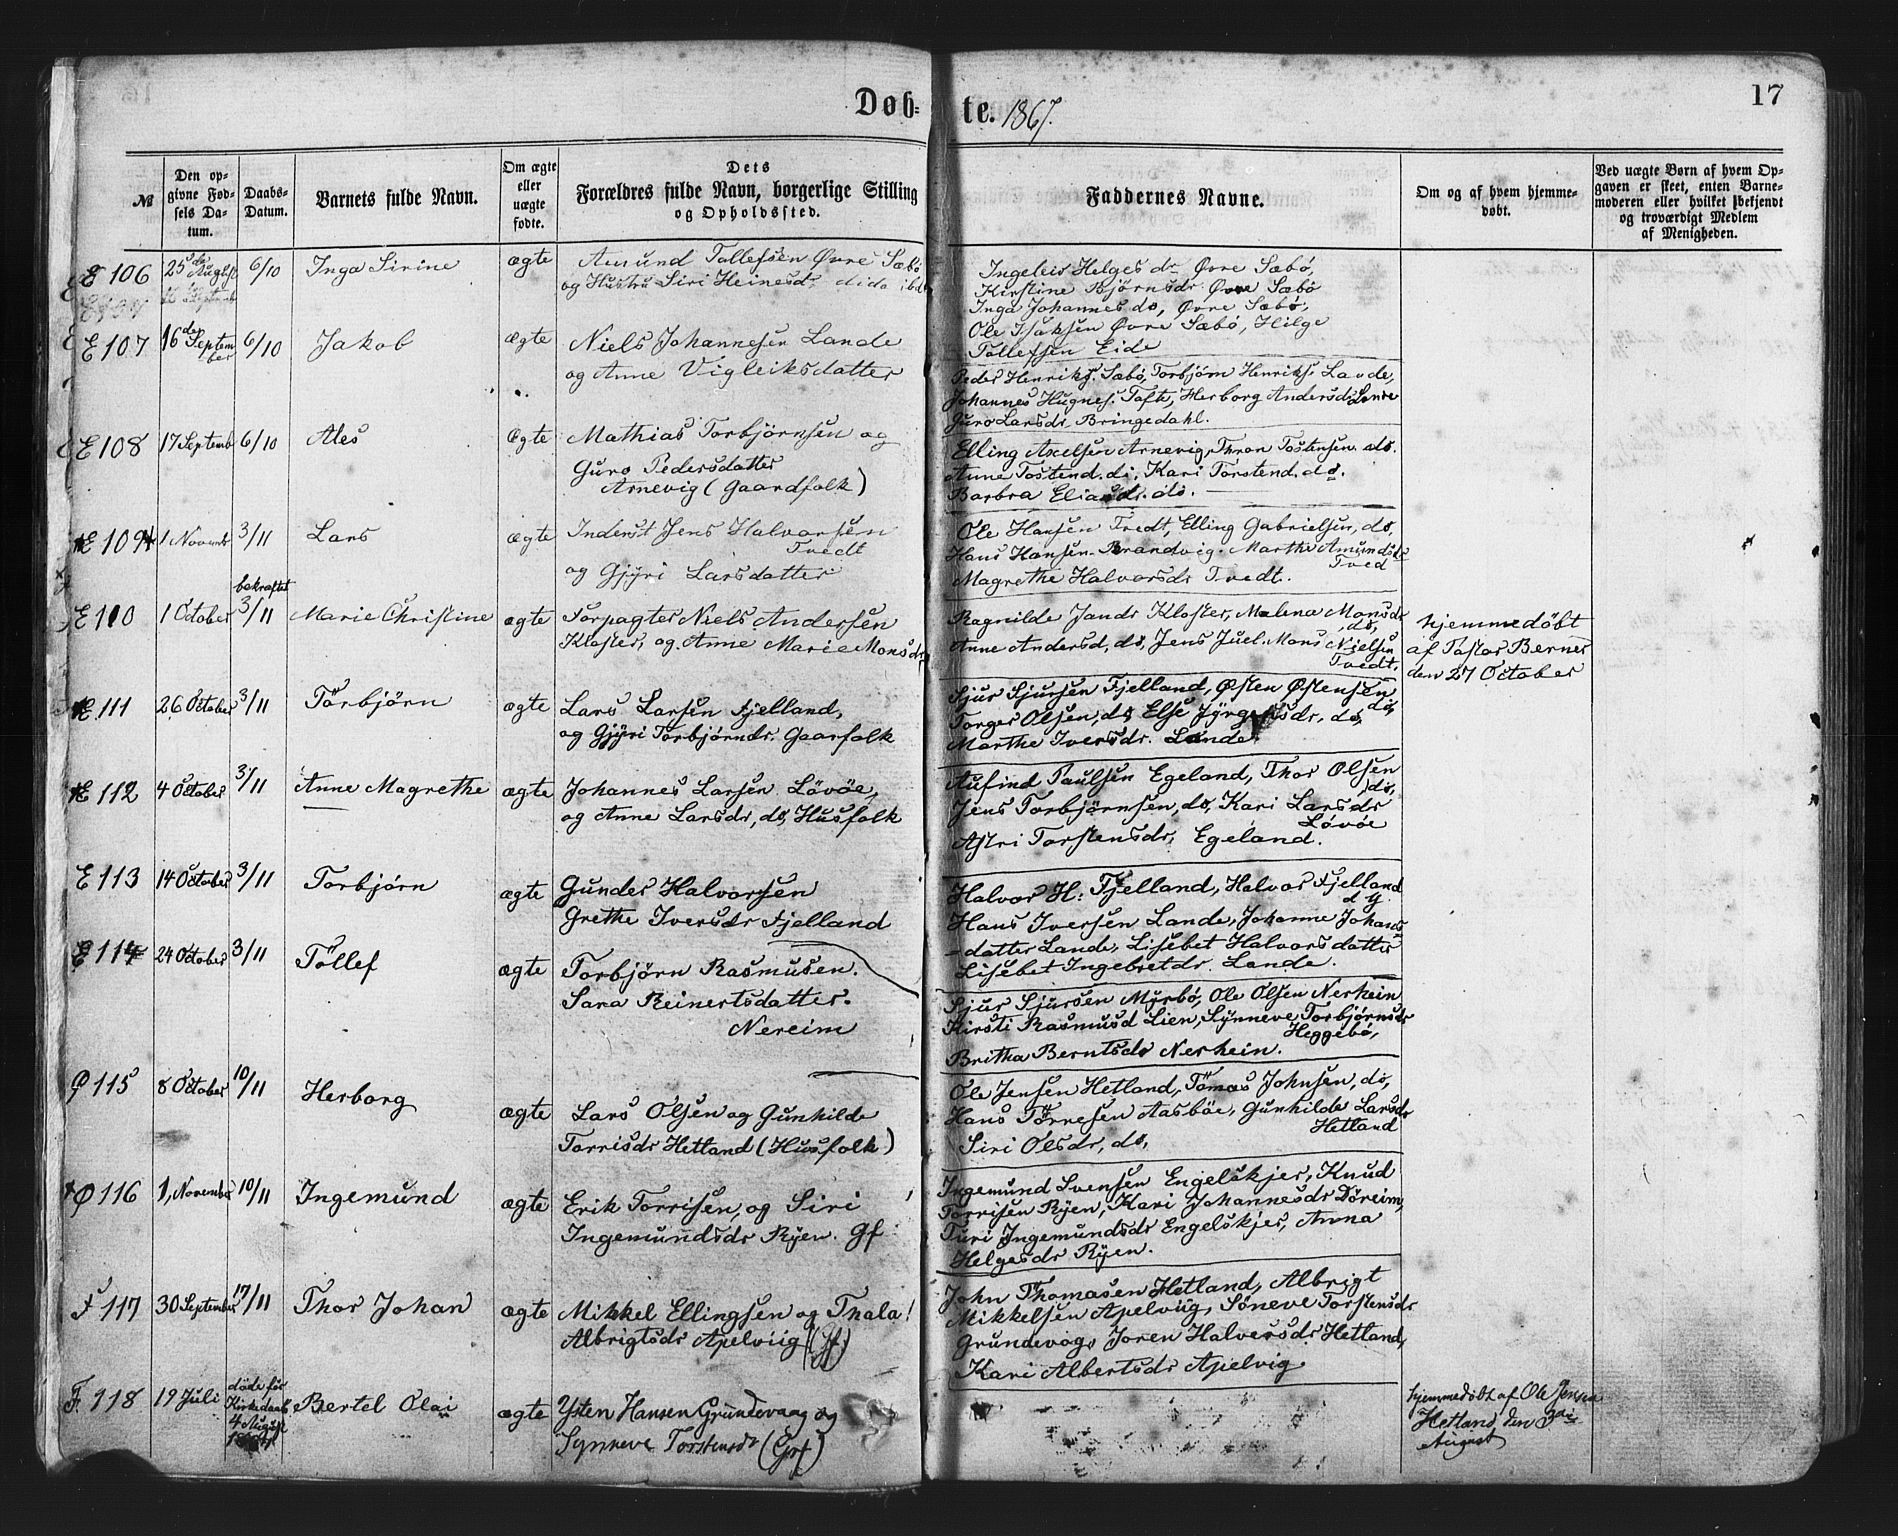 Døb-
te. 1867.
17
№
Den op-
givne Fød-
sels Da-
tum.
Daabs-
Datum.
Barnets fulde Navn.
Om ægte
eller
uægte
fødte.
Dets
Forældres fulde Navn, borgerlige Stilling
og Opholdssted.
Faddernes Navne.
Om og af hvem hjemme-
døbt.
Ved uægte Børn af hvem Op-
gaven er skeet, enten Barne-
moderen eller hvilket bekjendt
og troværdigt Medlem
af Menigheden.
E 106 25de August 6/10 Inga Sirine ægte Amund Tollefsen Øvre Sæbø
og Hustru Siri Heinesdr dido ibd
Ingeleiv Helgesdr Øvre Sæbø,
Kirstine Bjørnsdr Øvre Sæbø
Inga Johannesdo, Øvre Sæbø,
Ole Isaksen Øvre Sæbø, Helge
Tollefsen Eide
E 107 16de Septem
ber 6/10 Jakob ægte Niels Johannesen Lande
og Anne Vigleiksdatter
Peder Henriks. Sæbø, Torbjørn Henriks. Lande,
Johannes Hugnes. Tafte, Herborg Andersdr Lande
Guro Larsdr. Bringedahl.
E 108 17 Septemb 6/10 Ales Ægte Mathias Torbjørnsen og
Guro Pedersdatter
Arnevig (Gaardfolk)
Elling Axelsen Arnevig, Thron Tostensen. do.
Anne Tostend. di, Kari Torstend. do.
Barbra Eliasdr. do.
E 109 1 Novembr 3/11 Lars ægte Inderst Jens Halvorsen
Tvedt
og Gjyri Larsdatter
Ole Hansen Tvedt, Elling Gabrielsen, do,
Hans Hansen Brandvig. Marthe Amundsdr
Tved
Magrethe Halvorsdr Tvedt.
bekraftet
E 110 1 October 3/11 Marie Christine ægte Forpagter Niels Andersen
Kloster, og Anne Marie Monsdr
Ragnilde Jansdr Kloster, Malena Monsdr
do,
Anne Andersd, do, Jens Juel. Mons Nielsen
Tvedt.
hjemmedøbt
af Pastor Berner
den 27 October
E 111 26 October 3/11 Törbjørn ægte Lars Larsen Fjelland,
og Gjyri Torbjørnsdr. Gaarfolk
Sjur Sjursen Fjelland, Østen Østensen
do,
Torger Olsen, do, Else Jyrgensdr, do,
Marthe Iversdr. Lande.
E 112 4 October 3/11 Anne Magrethe ægte Johannes Larsen Lövöe,
og Anne Larsdr, do, Husfolk
Aufind Paulsen Egeland, Thor Olsen
do,
Jens Torbjørnsen, do, Kari Larsdr
Løvöe
Astri Torstensdr, Egeland.
E 113 14 October 3/11 Torbjørn ægte Gunder Halvorsen
Grethe Iversdr Fjelland
Halvor H: Fjelland, Halvor Fjelland
d y.
Hans Iversen Lande, Johanne Johans
-datter Lande, Lisebet Halvorsdatter
Lisebet Ingebretdr. Lande.
E 114 24 October 3/11 Töllef ægte Torbjörn Rasmusen.
Sara Reinertsdatter.
Nereim
Sjur Sjursen Myrbø, Ole Olsen Nerhein
Kirsti Rasmusd Lien, Synneve Torbjørnsdr
Heggebø,
Britha Berntsdr Nerhein.
Ø 115 8 October 10/11 Herborg ægte Lars Olsen og Gunhilde
Torrisdr Hetland (Husfolk)
Ole Jensen Hetland, Tömas Johnsen, do,
Hans Törresen Aasböe, Gunhilde Larsdr
Hetland
Siri Olsdr, do,
Ø 116 1, November 10/11 Ingemund ægte Erik Torrisen, og Siri
Ingemundsdr Ryen. Gf
Ingemund Svensen Engelskjer, Knud
Torrisen Ryen, Kari Johannesdr Döreim,
Turi Ingemundsdr Engelskjer, Anna
Helgesdr Ryen.
F 117 30 September 17/11 Thor Johan ægte Mikkel Ellingsen og Thala!
Albrigtsdr Apelviig (Gf)
John Thomasen Hetland, Albrigt
Mikkelsen Apelviig, Söneve Torstensdr
Grundevog, Joren Halversdr Hetland,
Kari Albertsdr Apelvig
F. 118 19 Juli døde før
Kirkedaab
4 August
Bertel Olai ægte Ysten Hansen Grundevaag og
Synneve Torstensdr (Grf)
hjemmedøbt af Ole Jensen
Hetland den 3die
August